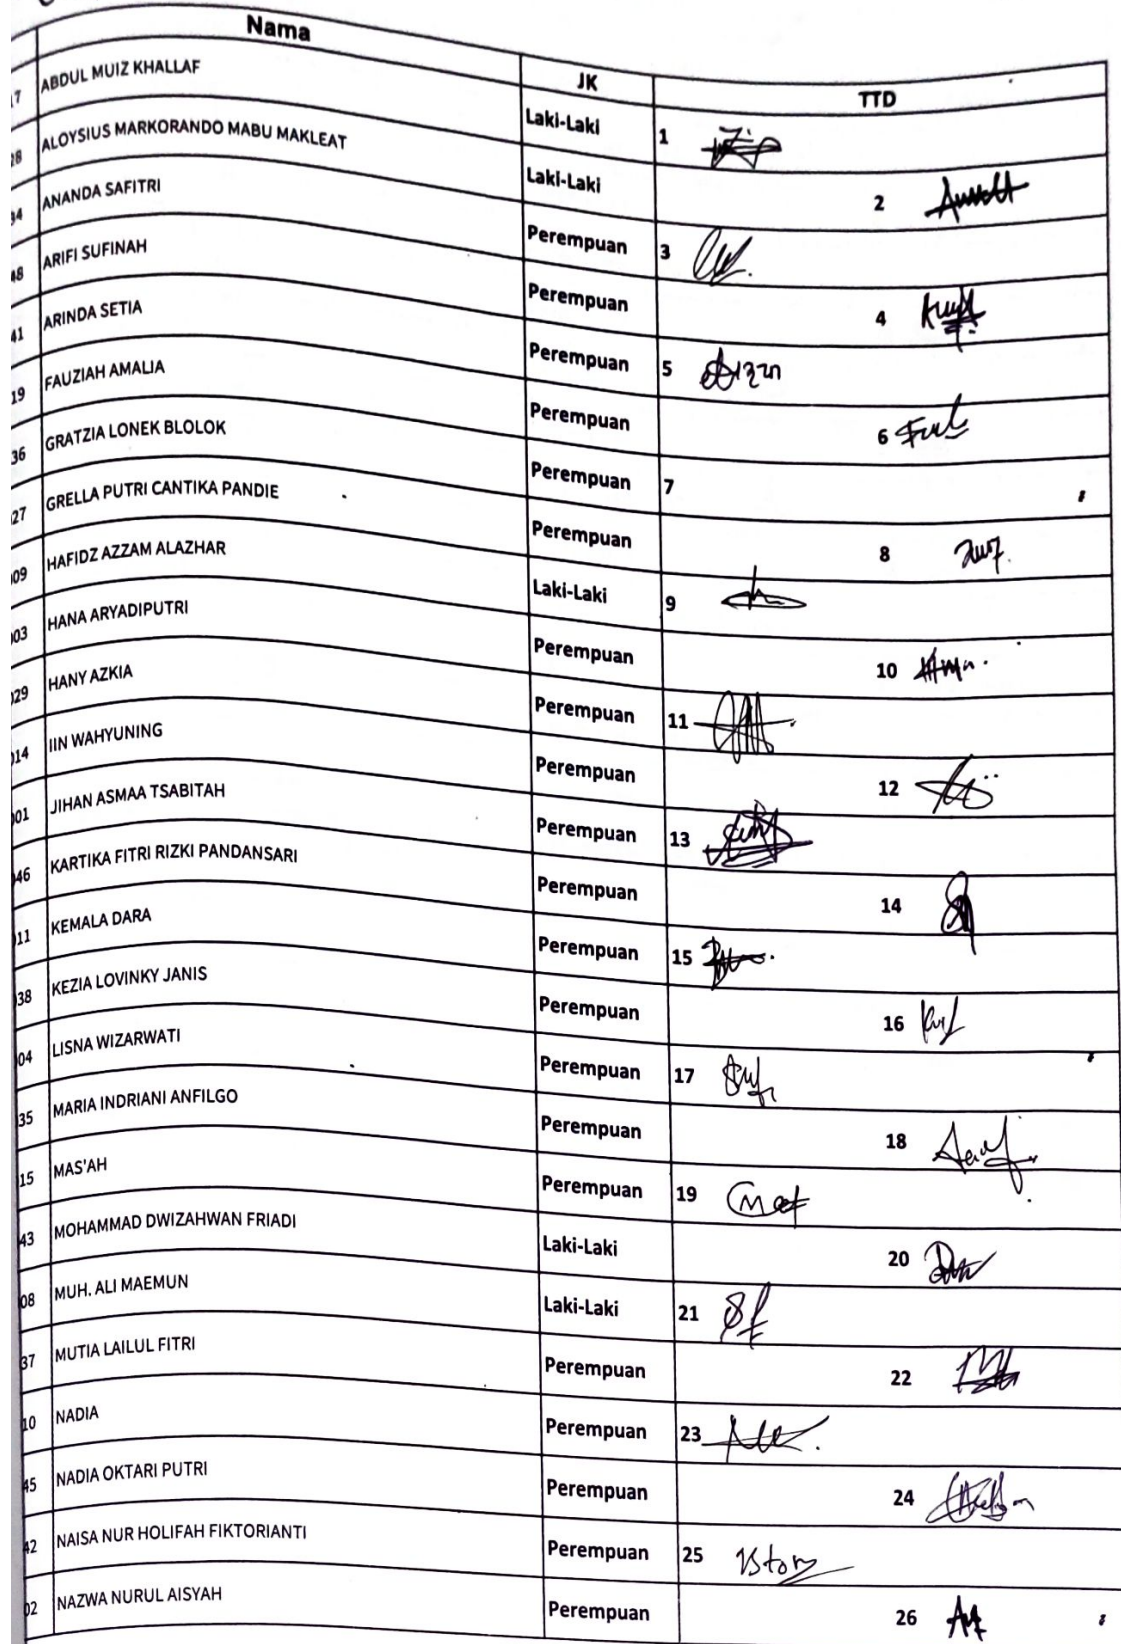 Nama JK TTD
7 ABDUL MUIZ KHALLAF Laki-Laki 1
28 ALOYSIUS MARKORANDO MABU MAKLEAT Laki-Laki 2
34 ANANDA SAFITRI Perempuan 3
48 ARIFI SUFINAH Perempuan 4
41 ARINDA SETIA Perempuan 5
19 FAUZIAH AMALIA Perempuan 6
36 GRATZIA LONEK BLOLOK Perempuan 7
27 GRELLA PUTRI CANTIKA PANDIE Perempuan 8
09 HAFIDZ AZZAM ALAZHAR Laki-Laki 9
03 HANA ARYADIPUTRI Perempuan 10
029 HANY AZKIA Perempuan 11
014 IIN WAHYUNING Perempuan 12
001 JIHAN ASMAA TSABITAH Perempuan 13
046 KARTIKA FITRI RIZKI PANDANSARI Perempuan 14
011 KEMALA DARA Perempuan 15
38 KEZIA LOVINKY JANIS Perempuan 16
04 LISNA WIZARWATI Perempuan 17
35 MARIA INDRIANI ANFILGO Perempuan 18
15 MAS'AH Perempuan 19
43 MOHAMMAD DWIZAHWAN FRIADI Laki-Laki 20
08 MUH. ALI MAEMUN Laki-Laki 21
37 MUTIA LAILUL FITRI Perempuan 22
10 NADIA Perempuan 23
45 NADIA OKTARI PUTRI Perempuan 24
42 NAISA NUR HOLIFAH FIKTORIANTI Perempuan 25
02 NAZWA NURUL AISYAH Perempuan 26